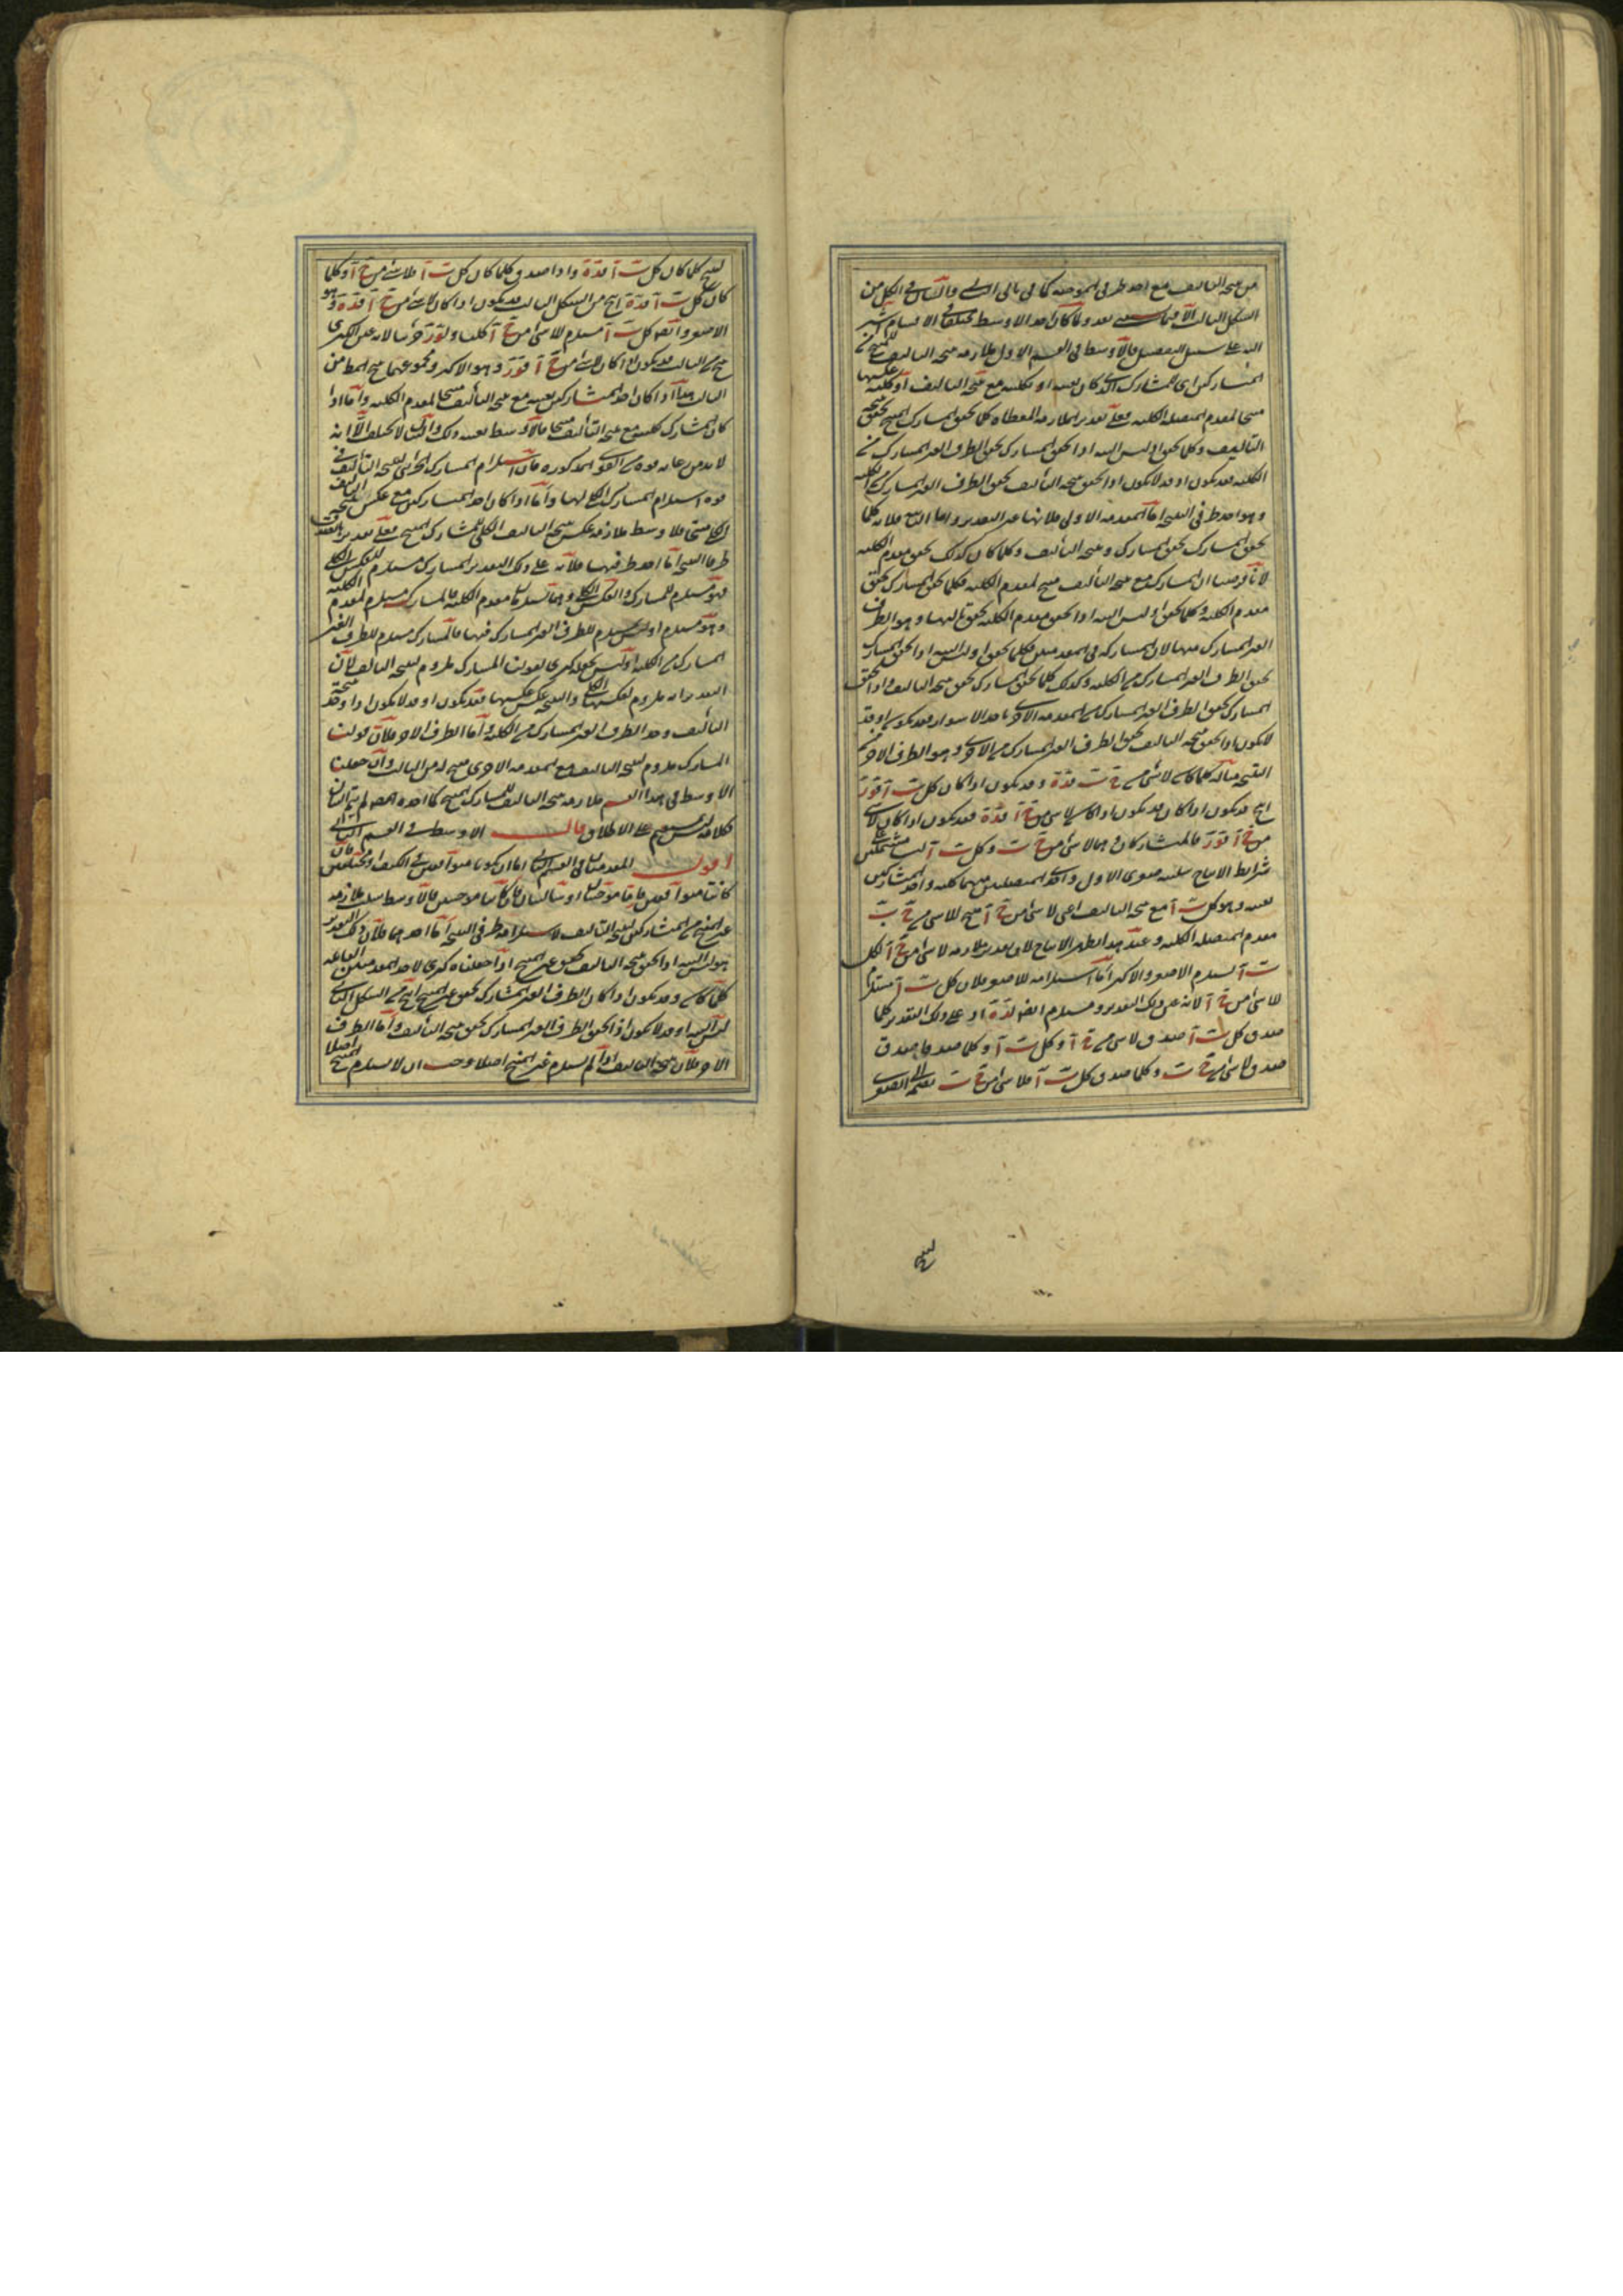 من نتيجة التأليف مع احد طرفى الموجبة كما فى تالى التالى والقياس فى الكل من
الشكل الثالث الا فيما سنعين بعد ولما كان احد الاوسط مختلفا فى الاقسام اشير
اليه على سبيل التفصيل فالاوسط فى القسم الاول ملازمة نتيجة التأليف
المتشاركين اى المشارك الذى كان بعينه او بكليته مع نتيجة التأليف او عكسها
منتجا لمقدم المتصلة الكلية فعلى تقدير الملازمة المعطاة كلما تحقق المشارك المنتج تحقق نتيجة
التأليف وكلما تحقق او ليس البتة اذا تحقق المشارك تحقق الطرف الغير المشارك من
الكلية فقد يكون او قد لا يكون اذا تحقق نتيجة التأليف تحقق الطرف الغير المشارك من الكلية
وهو احد طرفى النتيجة اما المقدمة الاولى فلانها عين التقدير واما الثانية فلانه كلما
تحقق المشارك تحقق المشارك ونتيجة التأليف وكلما كان كذلك تحقق مقدم الكلية
لانا فرضنا ان المشارك مع نتيجة التأليف منتج لمقدم الكلية فكلما تحقق المشارك تحقق
مقدم الكلية وكلما تحقق او ليس البتة اذا تحقق مقدم الكلية تحقق تاليها وهو الطرف
الغير المشارك منها لان المشاركة فى المقدمتين فكلما تحقق او ليس البتة اذا تحقق المشارك
تحقق الطرف الغير المشارك من الكلية وكذلك كلما تحقق المشارك تحقق نتيجة التأليف واذا تحقق
المشارك تحقق الطرف الغير المشارك من المقدمة الاخرى فقد يكون او قد
لا يكون اذا تحقق نتيجة التأليف تحقق الطرف الغير المشارك من الاخرى وهو الطرف الاخر من
النتيجة مثاله كلما كان لا شئ من ج ب فده وقد يكون اذا كان كل ب آ فور
ينتج قد يكون اذا كان قد يكون اذا كان لا شئ من ج آ فده فقد يكون اذا كان لا شئ
من ج آ فور فالمتشاركان وهما لا شئ من ج ب وكل ب آ ليسا مشتملين على
شرايط الانتاج واحد المتشاركين
بعينه وهو كل ب آ مع نتيجة التأليف اعنى لا شئ من ج آ منتج للا شئ من ج ب
مقدم المتصلة الكلية وعند هذا يظهر الانتاج لان بتقدير ملازمة لا شئ من ج آ لكل
ب آ يستلزم الاصغر والاكبر اما استلزامه للاصغر فلان كل ب آ مستلزم
للا شئ من ج آ لانه عين ذلك التقدير ومستلزم لده اذ على ذلك التقدير كلما
صدق كل ب آ صدق لا شئ من ج آ وكل ب آ وكلما صدقا صدق
صدق لا شئ من ج ب وكلما صدق كل ب آ فلا شئ من ج ب نضمه الى الصغرى
لينتج
لينتج كلما كان كل ب آ فده واذا صدق كلما كان كل ب آ فلا شئ من ج آ وكلما
كان كل ب آ فده انتج من الشكل الثالث قد يكون اذا كان لا شئ من ج آ فده وهو
الاصغر وايضا كل ب آ مستلزم للا شئ من ج آ كليا ولور جزئيا لانه عين الكبرى
ينتج من الثالث قد يكون اذا كان لا شئ من ج آ فور وهو الاكبر ومجموعهما ينتج المط من
الثالث هذا اذا كان احد المتشاركين بعينه مع نتيجة التأليف منتجا لمقدم الكلية واما اذا
كان المشارك بكليته مع نتيجة التأليف منتجا فالاوسط بعينه ذلك والبيان لا يختلف الا انه
لا بد من القوى المذكورة فان استلزام المشارك الجزئى لنتيجة التأليف فى
قوة استلزام المشارك الكلى لها واما اذا كان احد المتشاركين مع عكس نتيجة التأليف
الكلى منتجا فالاوسط ملازمة عكس نتيجة التأليف الكلى للمشارك المنتج فعلى تقدير
طرفا النتيجة اما احد طرفيها فلانه على ذلك التقدير المشارك مستلزم للعكس الكلى
فهو مستلزم للمشارك والعكس الكلى وهما يستلزمان مقدم الكلية فالمشارك مستلزم لمقدم الكلية
وهو مستلزم او ليس مستلزم للطرف الغير المشارك فيها فالمشارك مستلزم للطرف الغير
المشارك من الكلية او ليس نجعله كبرى لقولنا المشارك ملزوم لنتيجة التأليف لان
التقدير انه ملزوم لعكسها الكلى والنتيجة عكس عكسها فقد يكون او قد لا يكون اذا وجد نتيجة
التأليف وجد الطرف الغير المشارك من الكلية واما الطرف الاخر فلان قولنا
المشارك ملزوم لنتيجة التأليف مع المقدمة الاخرى منتج له من الثالث وان جعلنا
الاوسط فى هذا القسم ملازمة نتيجة التأليف للمشارك المنتج كما اخذه المصنف لم يتم البيان
فكلامه ليس بمستقيم على الاطلاق قال الاوسط فى القسم الثانى
اقول المقدمتان فى القسم الثانى اما ان يكونا متوافقتين فى الكيف او مختلفتين فان
كانتا متوافقتين فاما موجبتان او سالبتان فان كانتا موجبتين فالاوسط سلب ملازمة
غير المنتج من المتشاركين لنتيجة التأليف لاستلزامه طرفى النتيجة اما احدهما فلان ذلك التقدير
هو ليس البتة اذا تحقق نتيجة التأليف تحقق غير المنتج اذا جعلناه كبرى لاحد المقدمتين القايلة
كلما كان وقد يكون اذا كان الطرف الغير المشارك تحقق غير المنتج انتج من الشكل الثانى
ليس البتة او قد لا يكون اذا تحقق الطرف الغير المشارك تحقق نتيجة التأليف واما الطرف
الاخر فلان نتيجة التأليف اذا لم يستلزم غير المنتج اصلا وجب ان لا يستلزم المنتج اصلا